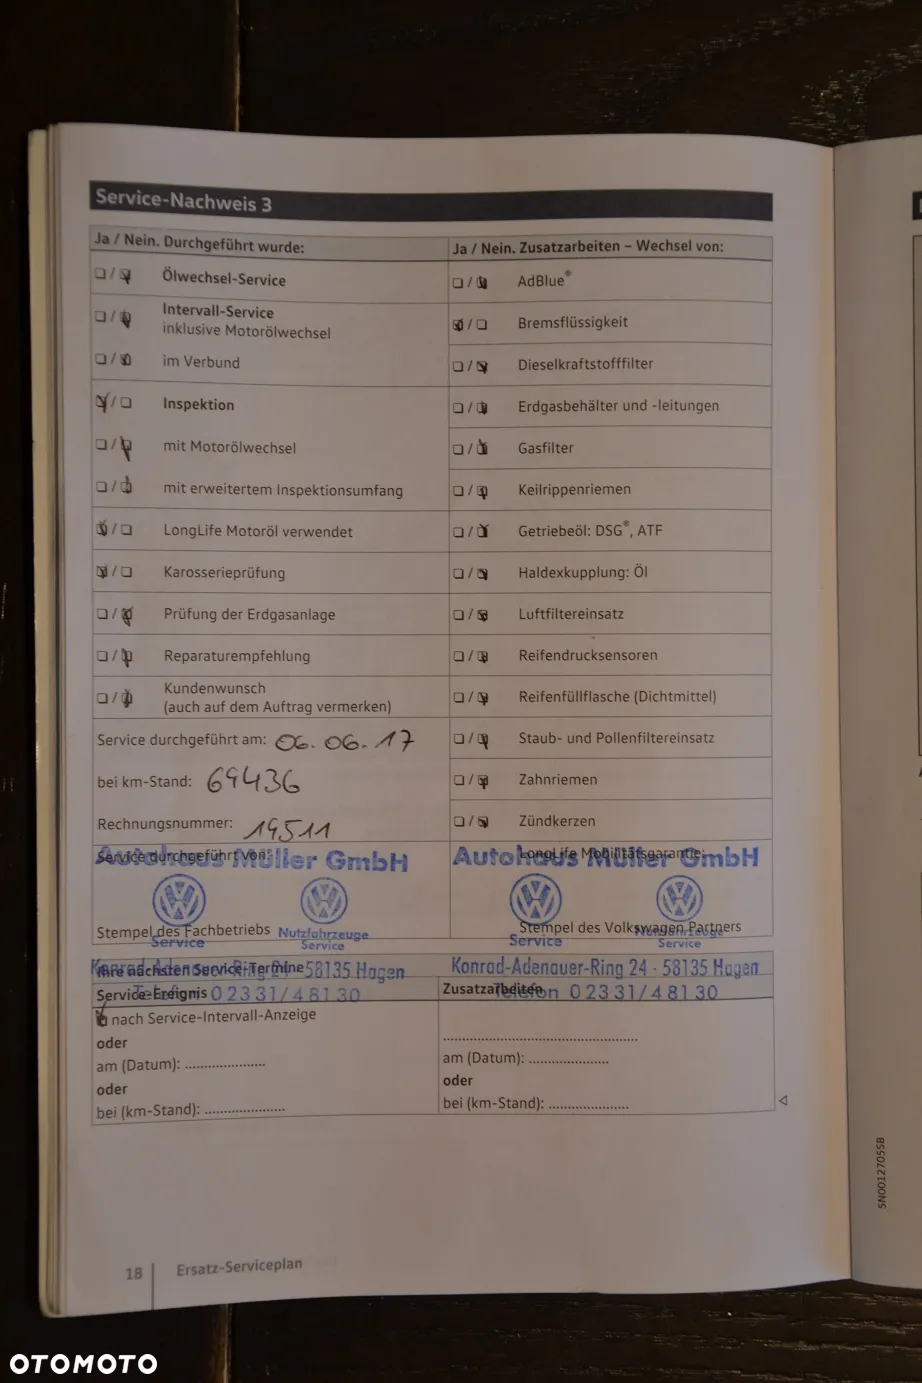 Service-Nachweis 3
Ja / Nein. Durchgeführt wurde:
Ölwechsel-Service
Intervall-Service
inklusive Motorölwechsel
im Verbund
Inspektion
mit Motorölwechsel
mit erweitertem Inspektionsumfang
LongLife Motoröl verwendet
Karosserieprüfung
Prüfung der Erdgasanlage
Reparaturempfehlung
Kundenwunsch
(auch auf dem Auftrag vermerken)
Service durchgeführt am: 06.06.17
bei km-Stand: 69436
Rechnungsnummer: 19511
Service durchgeführt von:
Autohaus Müller GmbH
Stempel des Fachbetriebs
Service
Nutzfahrzeuge
Service
Konrad-Adenauer-Ring 24 · 58135 Hagen
Telefon 0 23 31/4 81 30
Ja / Nein. Zusatzarbeiten – Wechsel von:
AdBlue®
Bremsflüssigkeit
Dieselkraftstofffilter
Erdgasbehälter und -leitungen
Gasfilter
Keilrippenriemen
Getriebeöl: DSG®, ATF
Haldexkupplung: Öl
Luftfiltereinsatz
Reifendrucksensoren
Reifenfüllflasche (Dichtmittel)
Staub- und Pollenfiltereinsatz
Zahnriemen
Zündkerzen
LongLife Mobilitätsgarantie:
Autohaus Müller GmbH
Stempel des Volkswagen Partners
Service
Nutzfahrzeuge
Service
Konrad-Adenauer-Ring 24 · 58135 Hagen
Telefon 0 23 31/4 81 30
Ihre nächsten Service-Termine
Service-Ereignis
nach Service-Intervall-Anzeige
oder
am (Datum): ......................
oder
bei (km-Stand): ......................
Zusatzarbeiten
am (Datum): ......................
oder
bei (km-Stand): ......................
18
Ersatz-Serviceplan
5N0012705SB
OTOMOTO